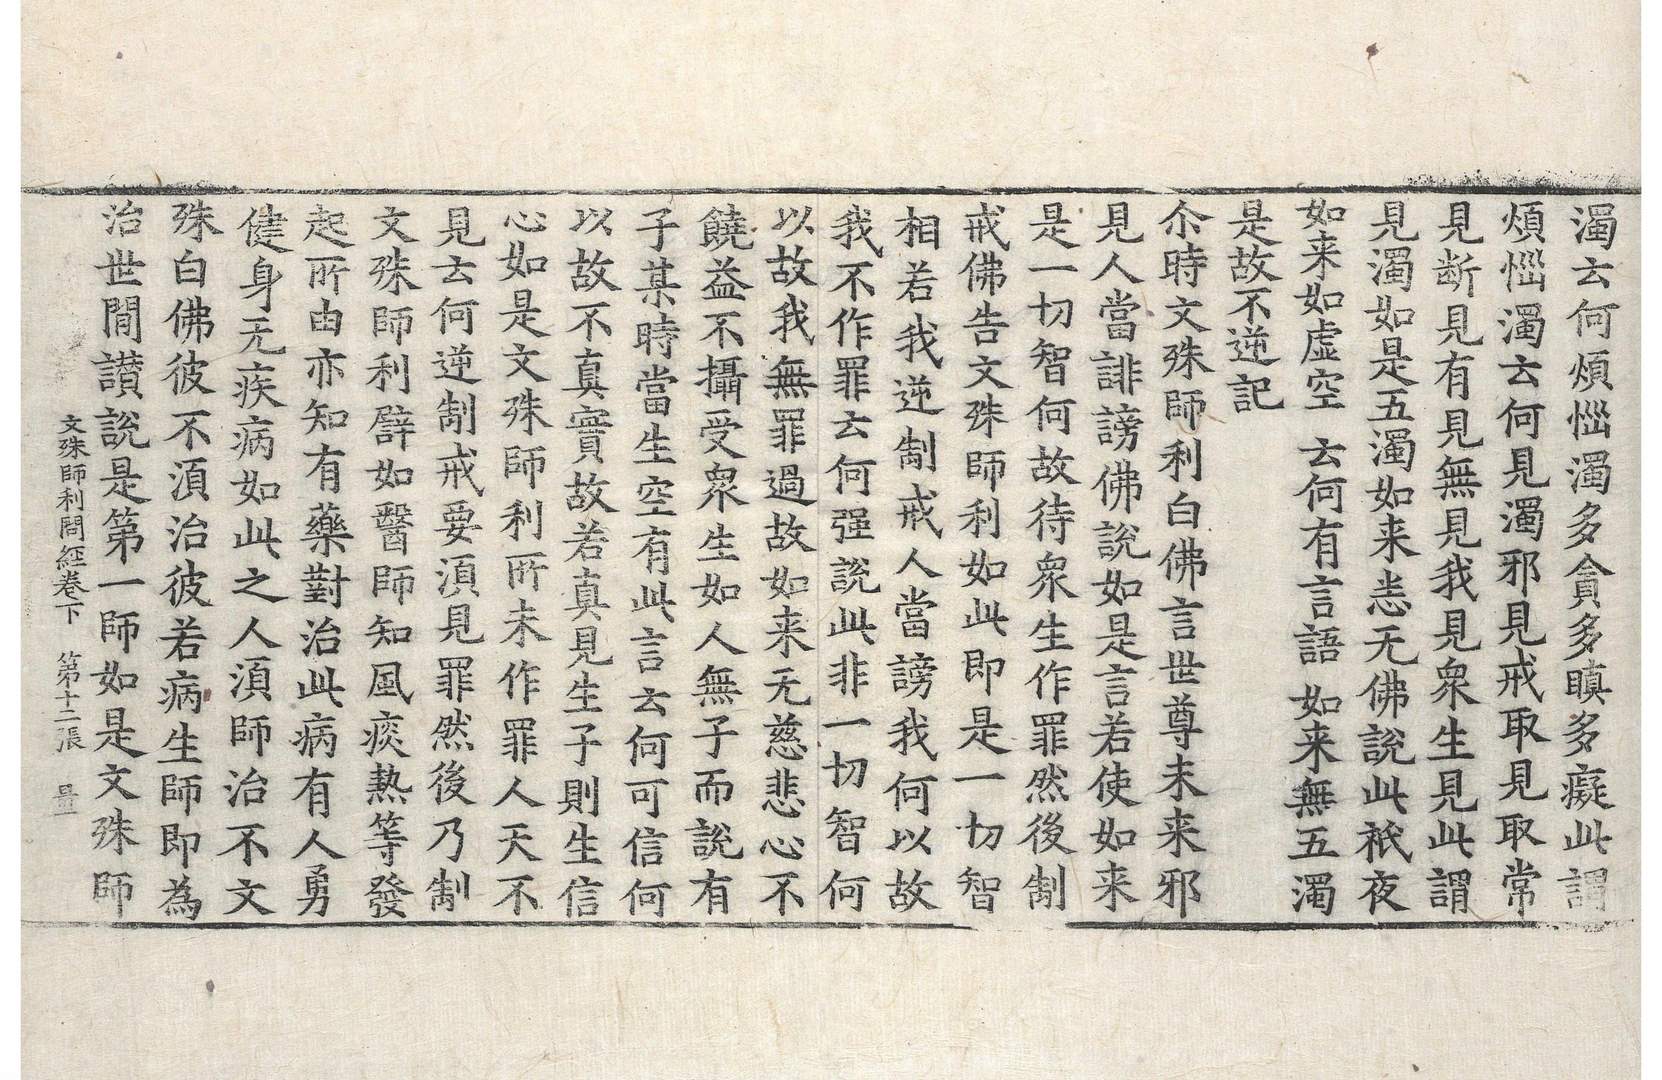 濁云何煩惱濁多貪多瞋多癡此謂
煩惱濁云何見濁邪見戒取見取常
見断見有見無見我見衆生見此謂
見濁如是五濁如来悉无佛說此祇夜
如来如虚空 云何有言語 如来無五濁
是故不逆記
尒時文殊師利白佛言世尊未来邪
見人當誹謗佛說如是言若使如来
是一切智何故待衆生作罪然後制
戒佛告文殊師利如此即是一切智
相若我逆制戒人當謗我何以故
我不作罪云何强說此非一切智何
以故我無罪過故如来无慈悲心不
饒益不攝受衆生如人無子而說有
子某時當生空有此言云何可信何
以故不真實故若真見生子則生信
心如是文殊師利所未作罪人天不
見云何逆制戒要湏見罪然後乃制
文殊師利譬如醫師知風痰熱等發
起所由亦知有藥對治此病有人勇
健身无疾病如此之人湏師治不文
殊白佛彼不湏治彼若病生師即為
治世間讃說是第一師如是文殊師
文殊師利問經卷下 第十二張 量